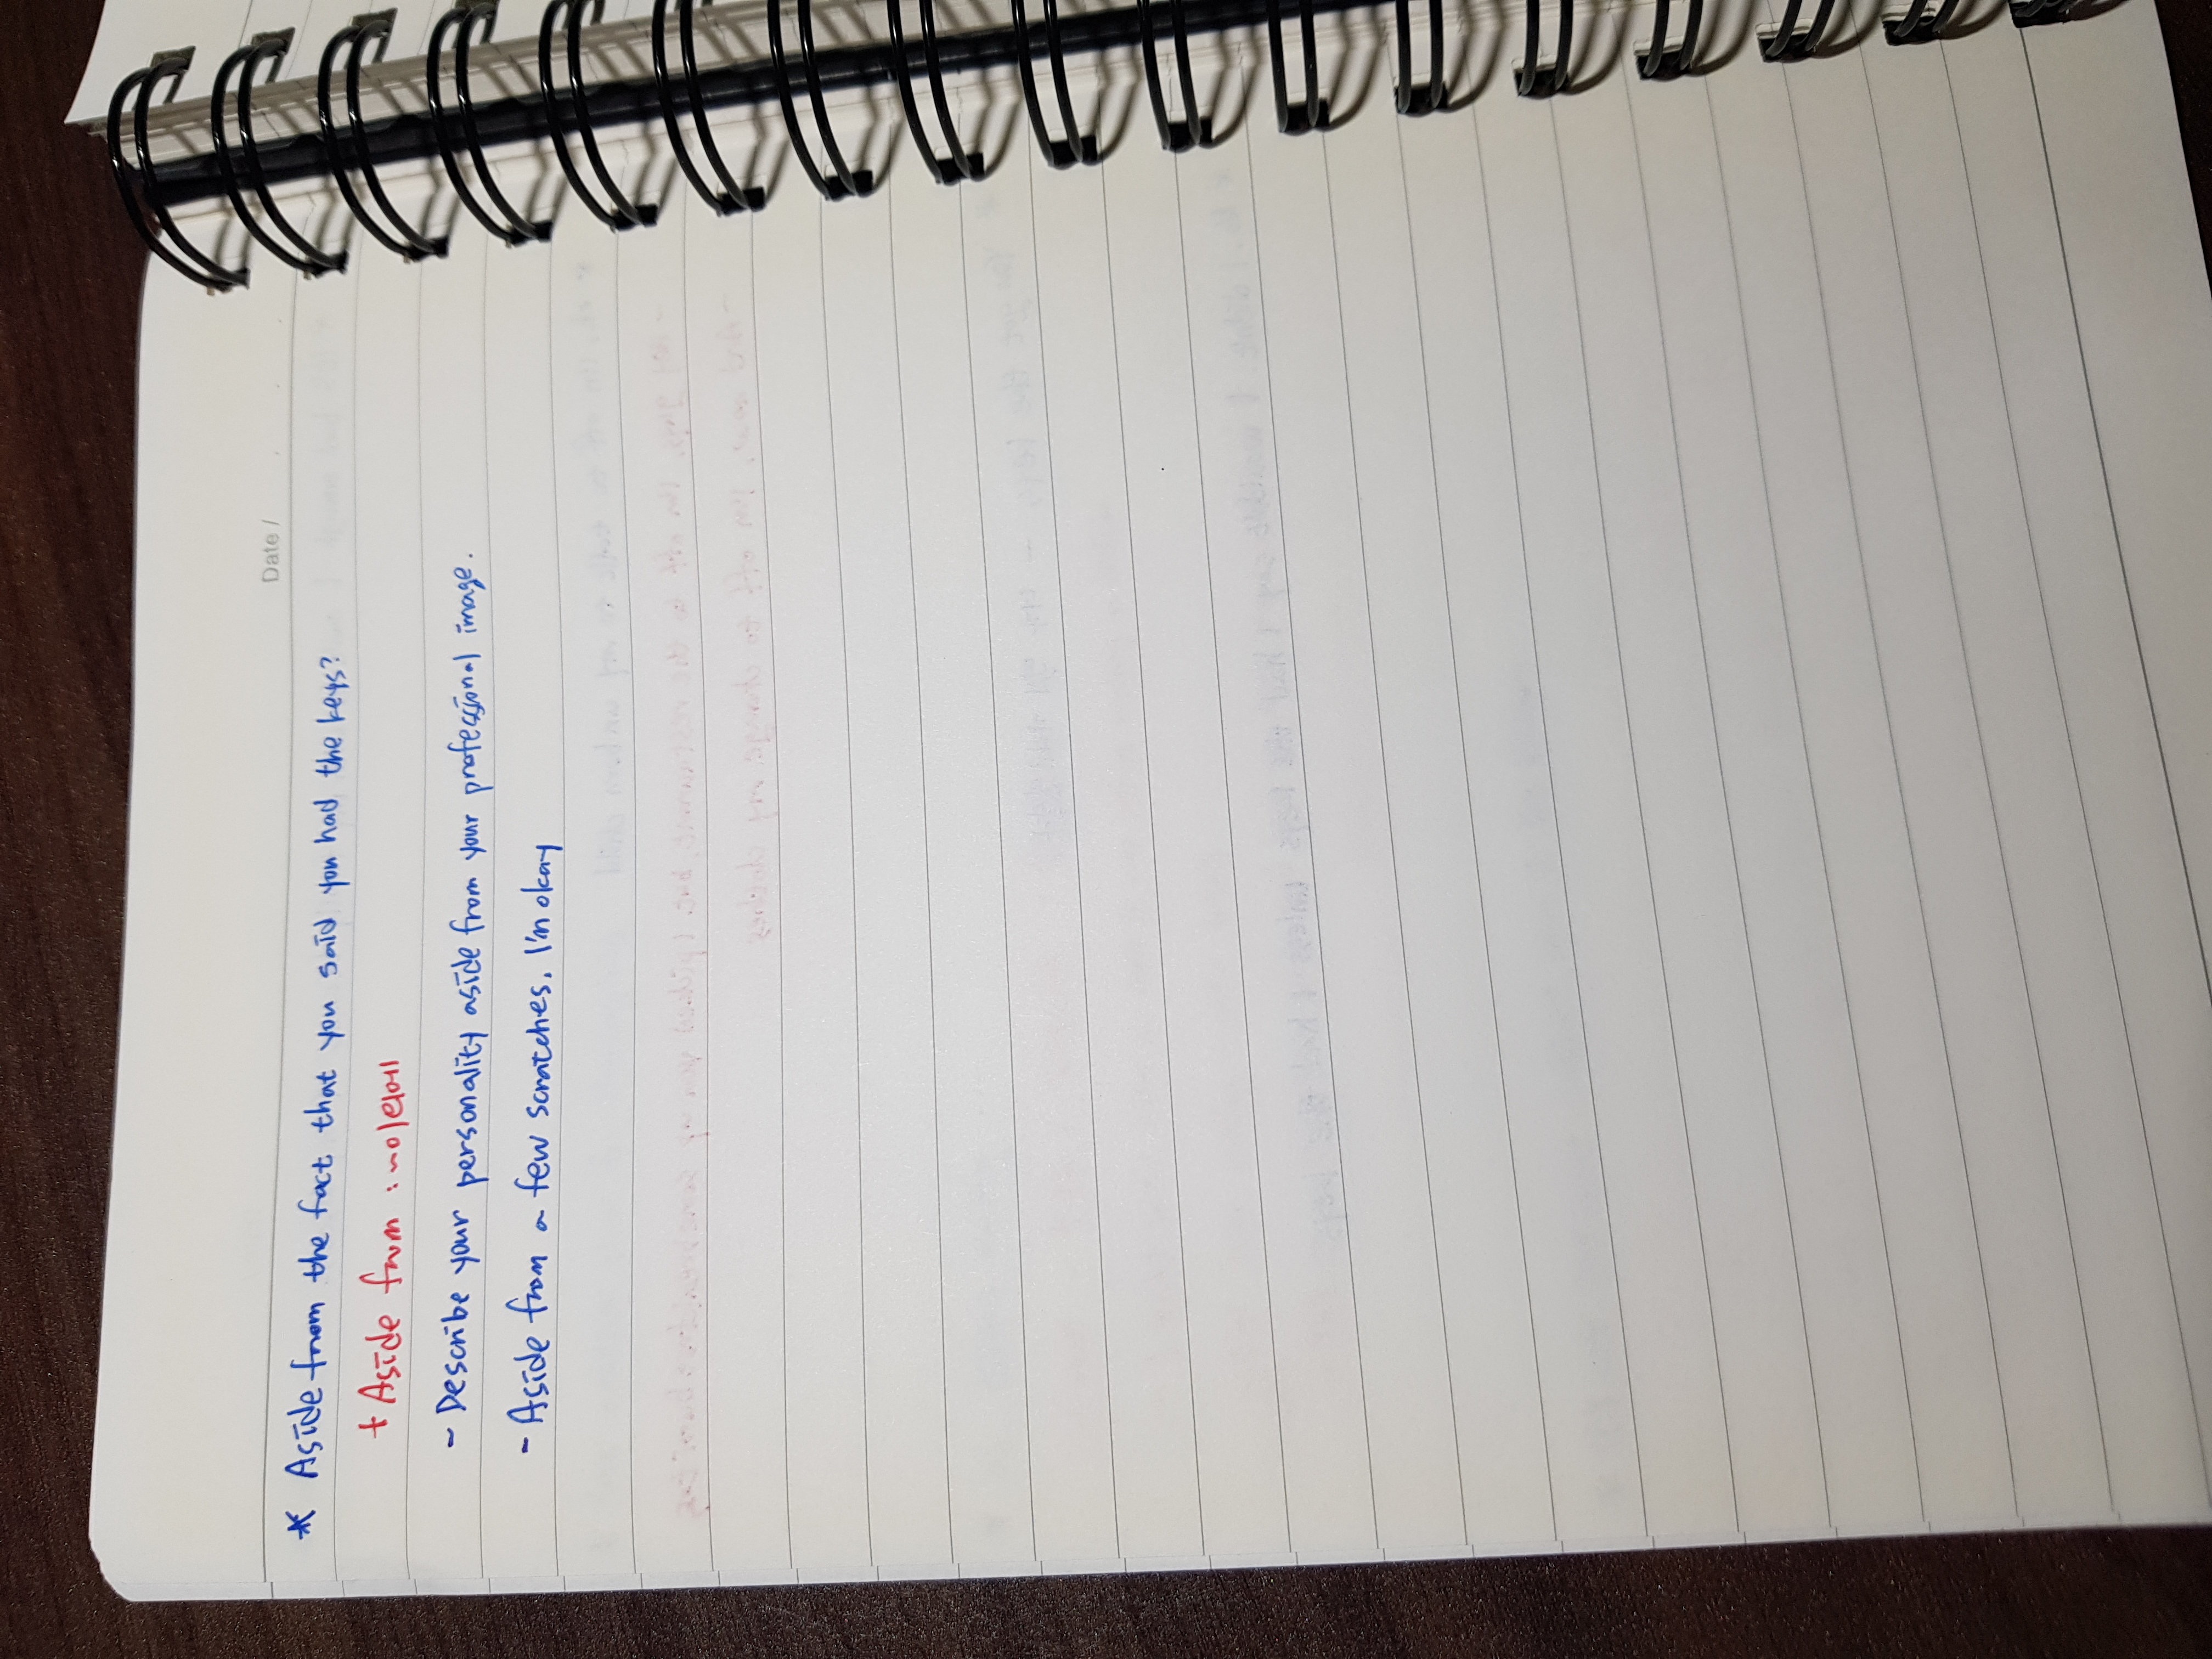 Date /
* Aside from the fact that you said you had the keys?
+ Aside from : ~이외에
- Describe your personality aside from your professional image.
- Aside from a few scratches, I'm okay